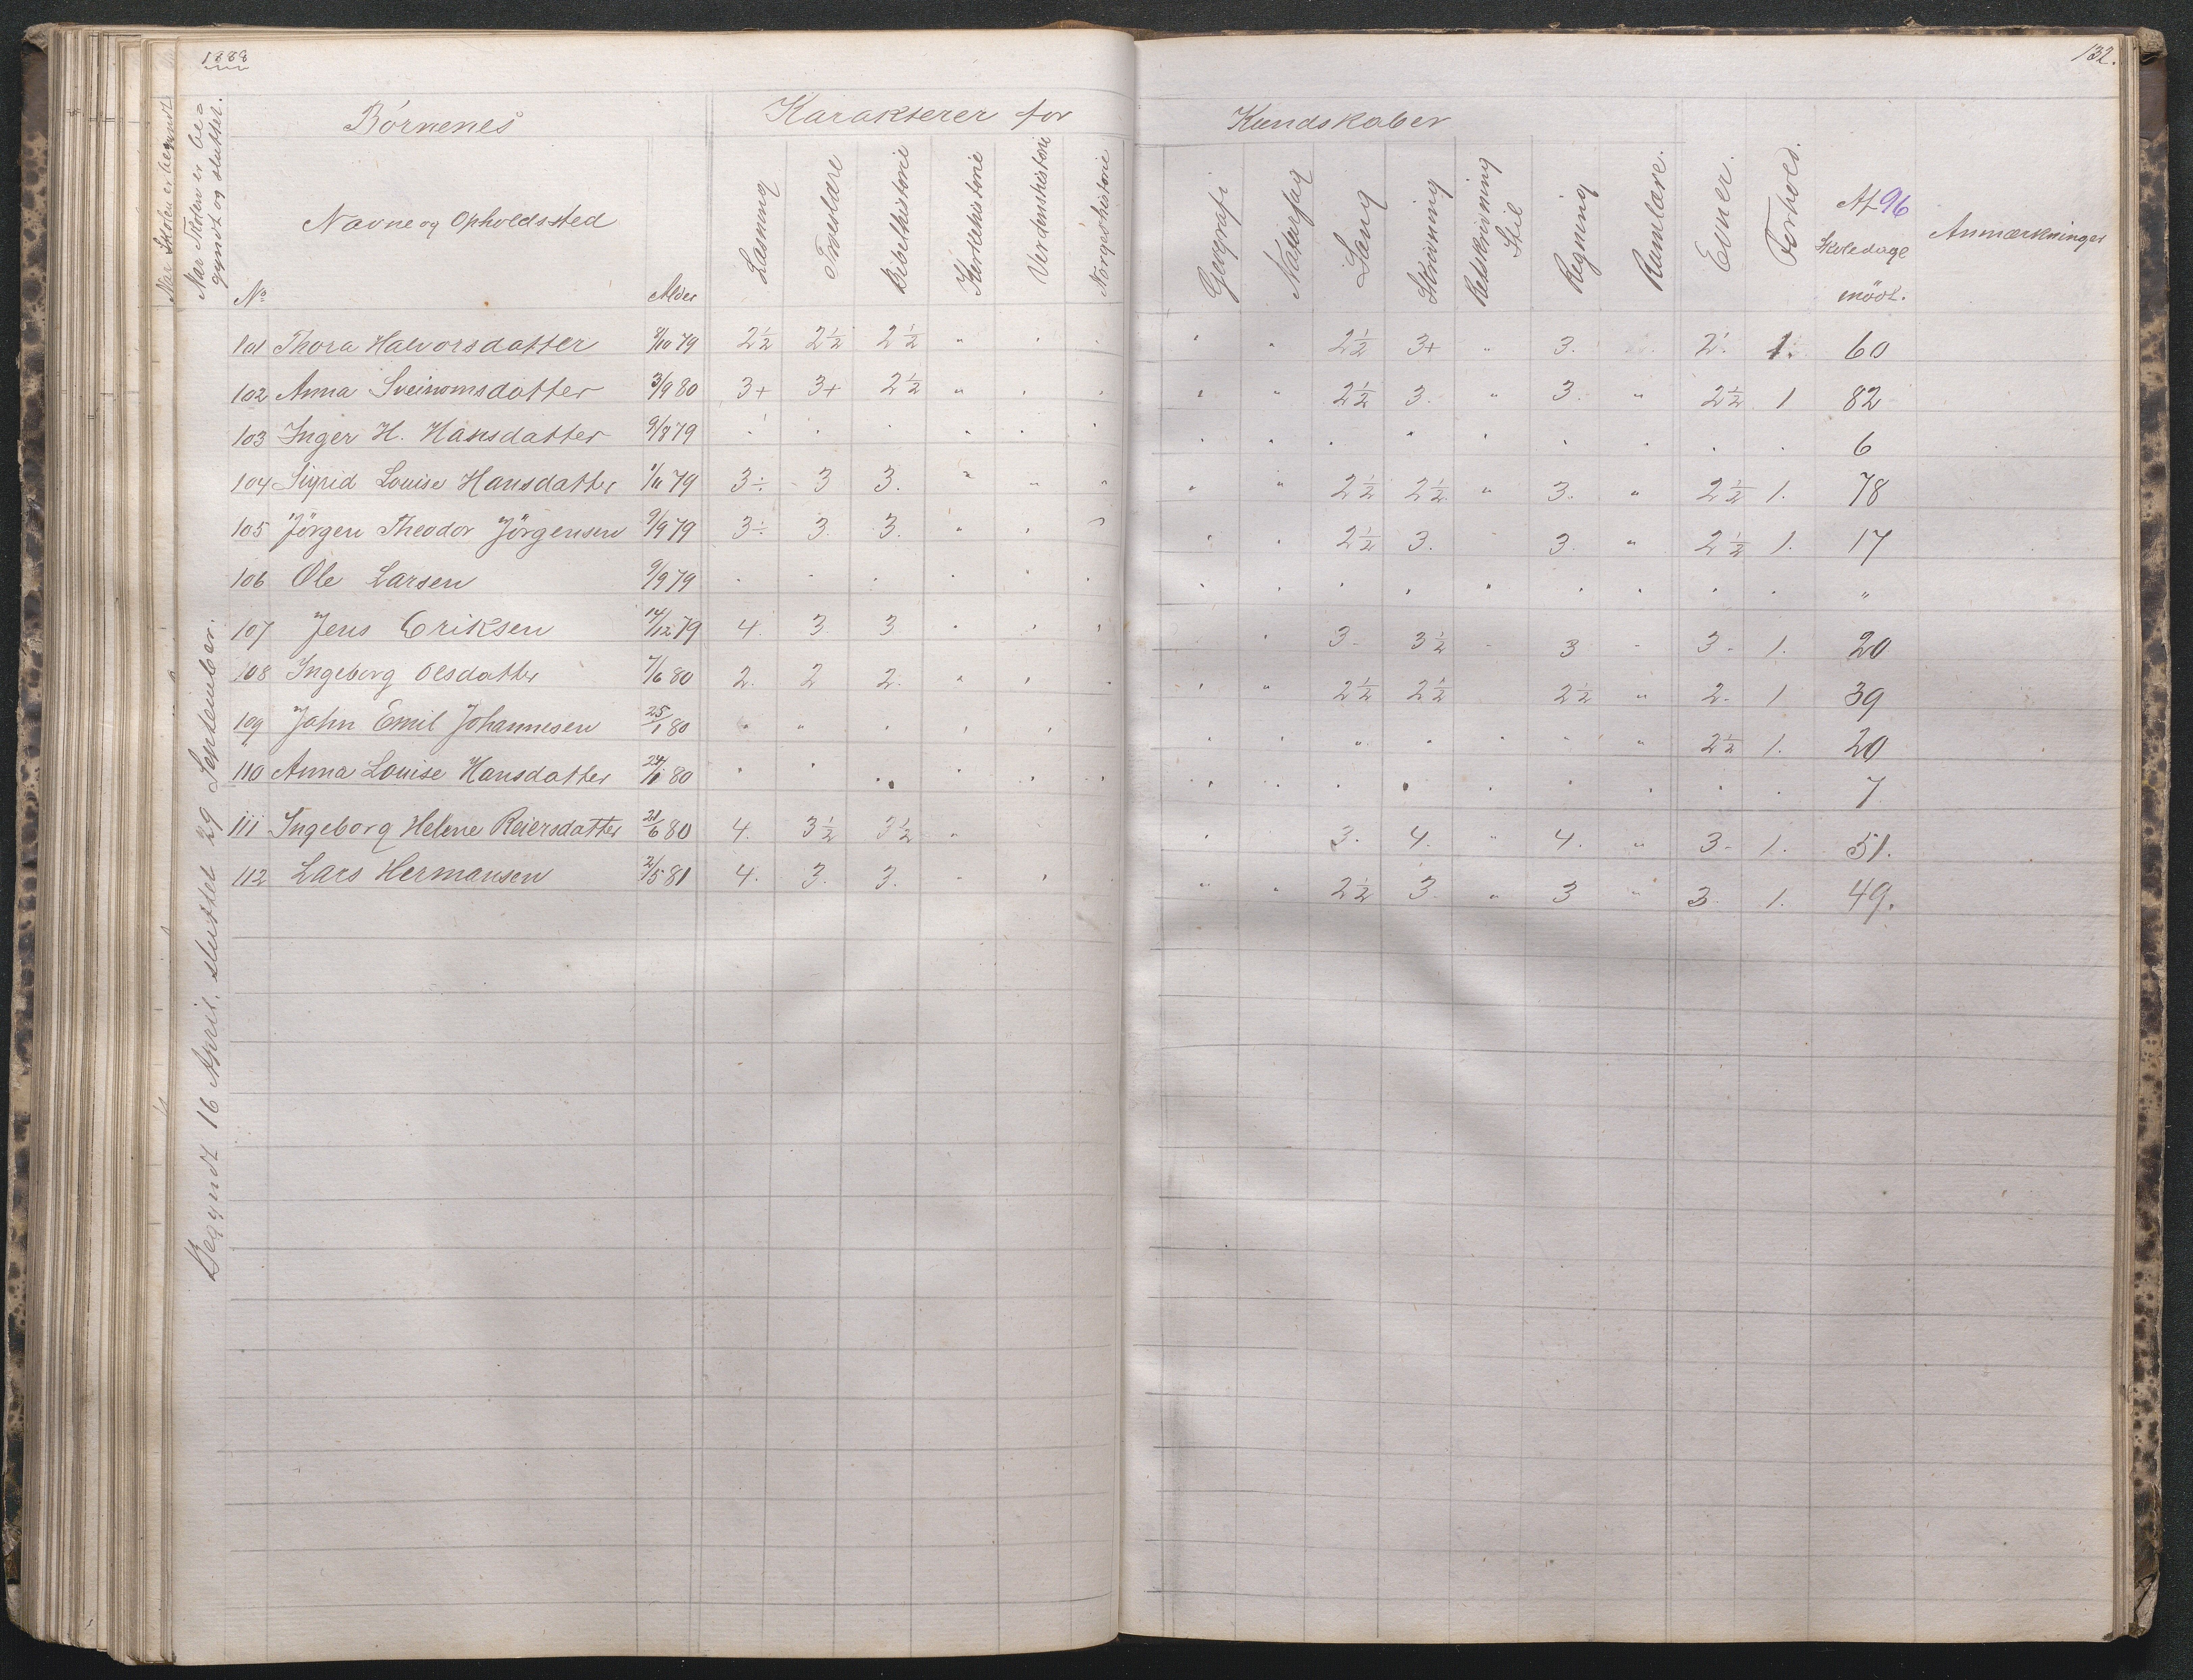 1888
132.
Når Skolen er begyndt
Når Skolen er be=
gyndt og sluttet.
Börnenes
Karakterer for
Kundskaber
Navne og Opholdssted
No
Alder
Læsning
Troeslære
Bibelhistorie
Kirkehistorie
Verdenshistorie
Norgeshistorie
Geografi
Naturfag
Sang
Skrivning
Retskrivning
Stil
Regning
Rumlære.
Evner.
Forhold.
Af 96
Skoledage
mödt.
Anmærkninger
Begyndt 16 April, sluttet 29 September.
101 Thora Halvorsdatter 8/10 79 2½ 2½ 2½ " " " " " 2½ 3+ " 3. 2. 1. 60
102 Anna Sveinomsdatter 3/9 80 3+ 3+ 2½ " " " " " 2½ 3. " 3. " 2½ 1 82
103 Inger H. Hansdatter 9/8 79 " " " " " " " " " " " " " " " 6
104 Sigrid Louise Hansdatter 1/11 79 3÷ 3 3. " " " " " 2½ 2½ " 3. " 2½ 1. 78
105 Jörgen Theodor Jörgensen 9/9 79 3÷ 3. 3. " " " " " 2½ 3. " 3. " 2½ 1. 17
106 Ole Larsen 9/9 79 " " " " " " " " " " " " " " " "
107 Jens Eriksen 14/12 79 4. 3. 3 " " " " 3- 3½ - 3 - 3- 1. 20
108 Ingeborg Olsdatter 7/6 80 2. 2 2. " " " " " 2½ 2½ 2½ " 2- 1 39
109 Jahn Emil Johannesen 25/1 80 " " " " " " " " " " " " 2½ 1. 20
110 Anna Louise Hansdatter 24/1 80 " " " " " " " " " " " " " " " 7
111 Ingeborg Helene Reiersdatter 21/6 80 4. 3½ 3½ " " 3. 4. " 4. " 3- 1. 51.
112 Lars Hermansen 2/5 81 4. 3. 3. " " " " 2½ 3. " 3 " 3. 1. 49.